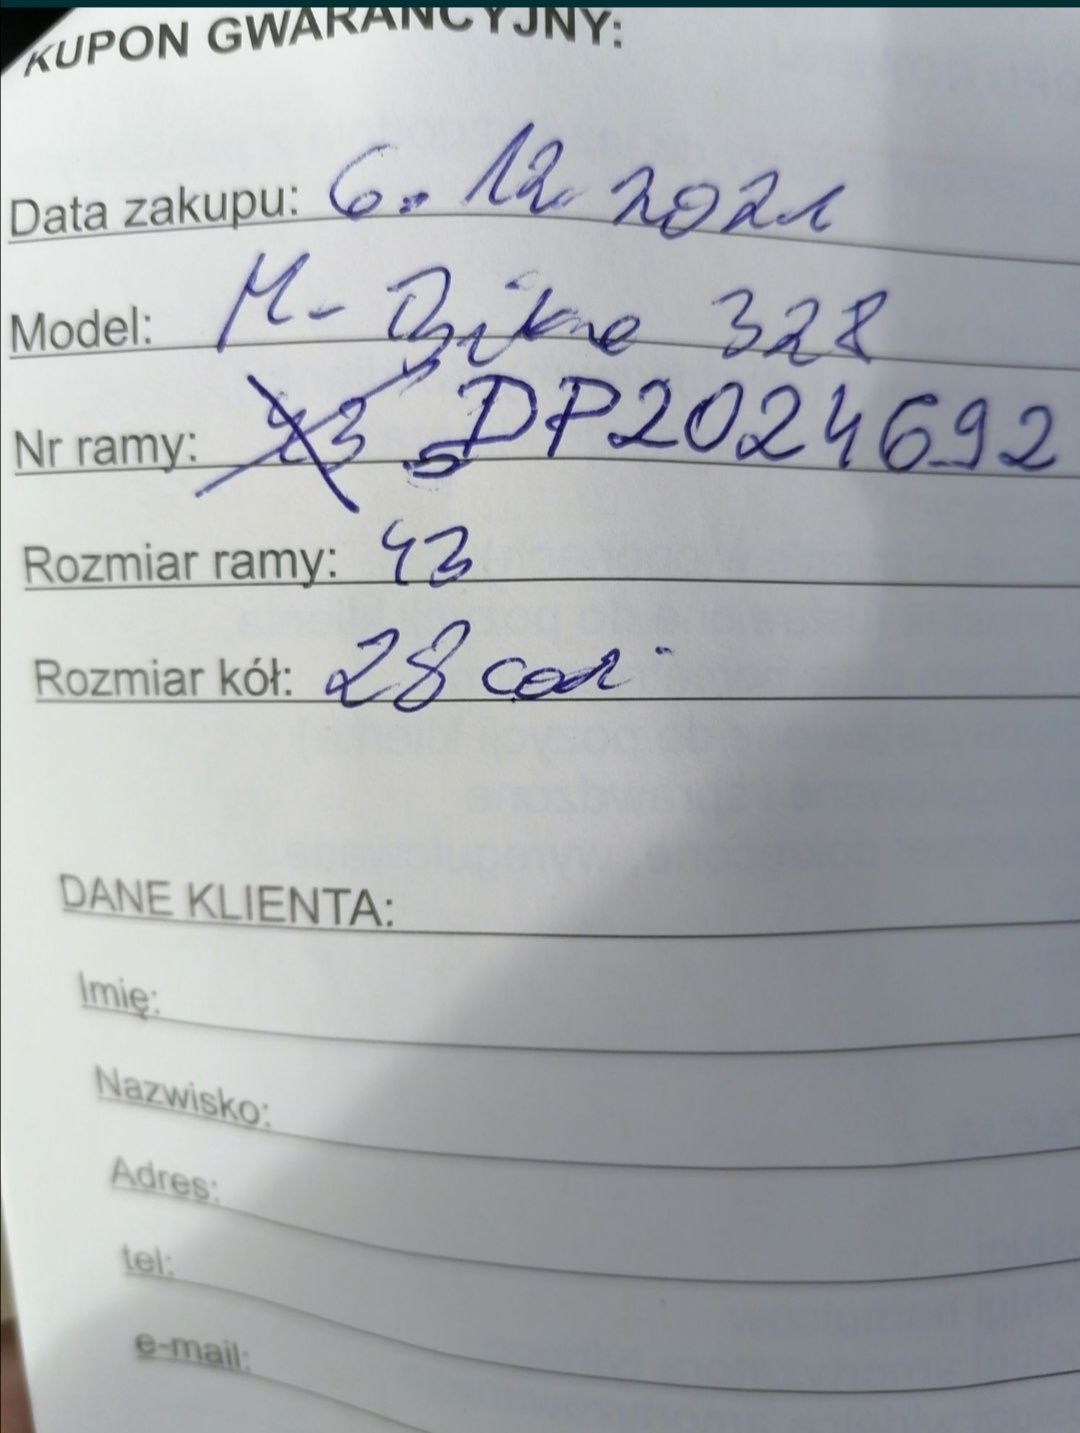 KUPON GWARANCYJNY:
Data zakupu: 6. 12. 2021
Model: M-Bike 328
Nr ramy: 43 DP2024692
Rozmiar ramy: 43
Rozmiar kół: 28 cali
DANE KLIENTA:
Imię:
Nazwisko:
Adres:
tel:
e-mail: